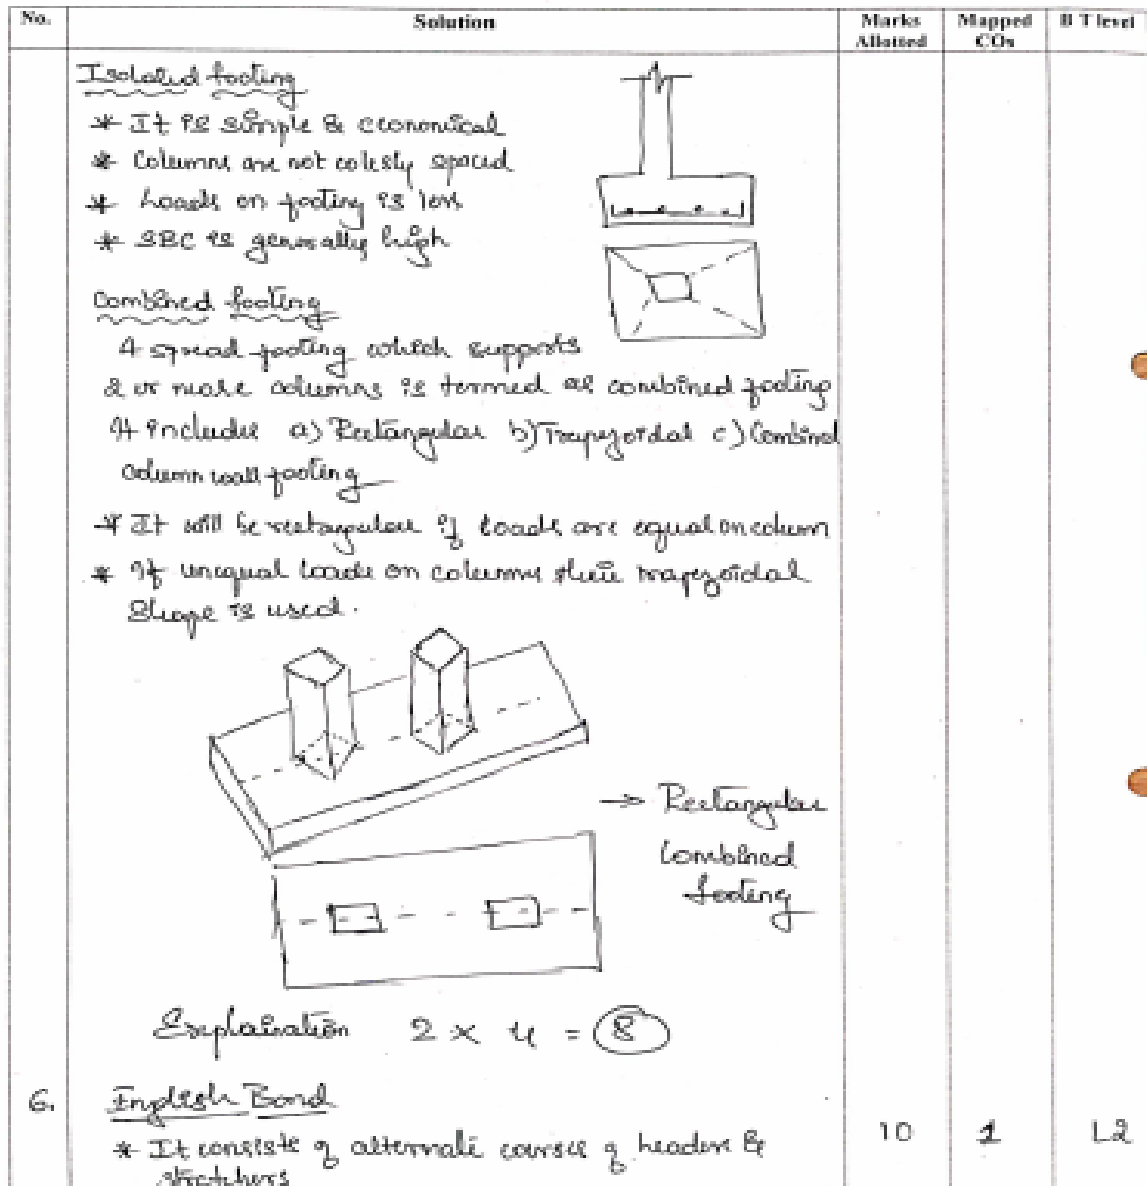 No. Solution Marks Allotted Mapped COs B T level
Isolated footing
* It is simple & economical
* Columns are not colesly spaced
* Loads on footing is less
* SBC is generally high
Combined footing
A spread footing which supports
2 or more columns is termed as combined footing
It includes a) Rectangular b) Trapezoidal c) Combined
column wall footing
* It will be rectangular if loads are equal on column
* If unequal loads on columns then trapezoidal
shape is used.
→ Rectangular
Combined
footing
Explaination 2 x 4 = 8
6. English Bond
* It consists of alternate courses of headers &
stretchers
10 1 L2